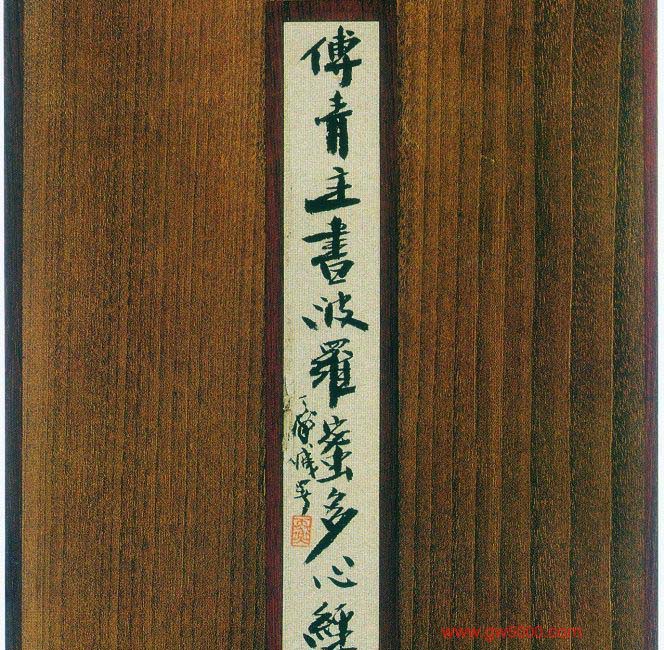 傅青主書波羅蜜多心經
www.gw5000.com